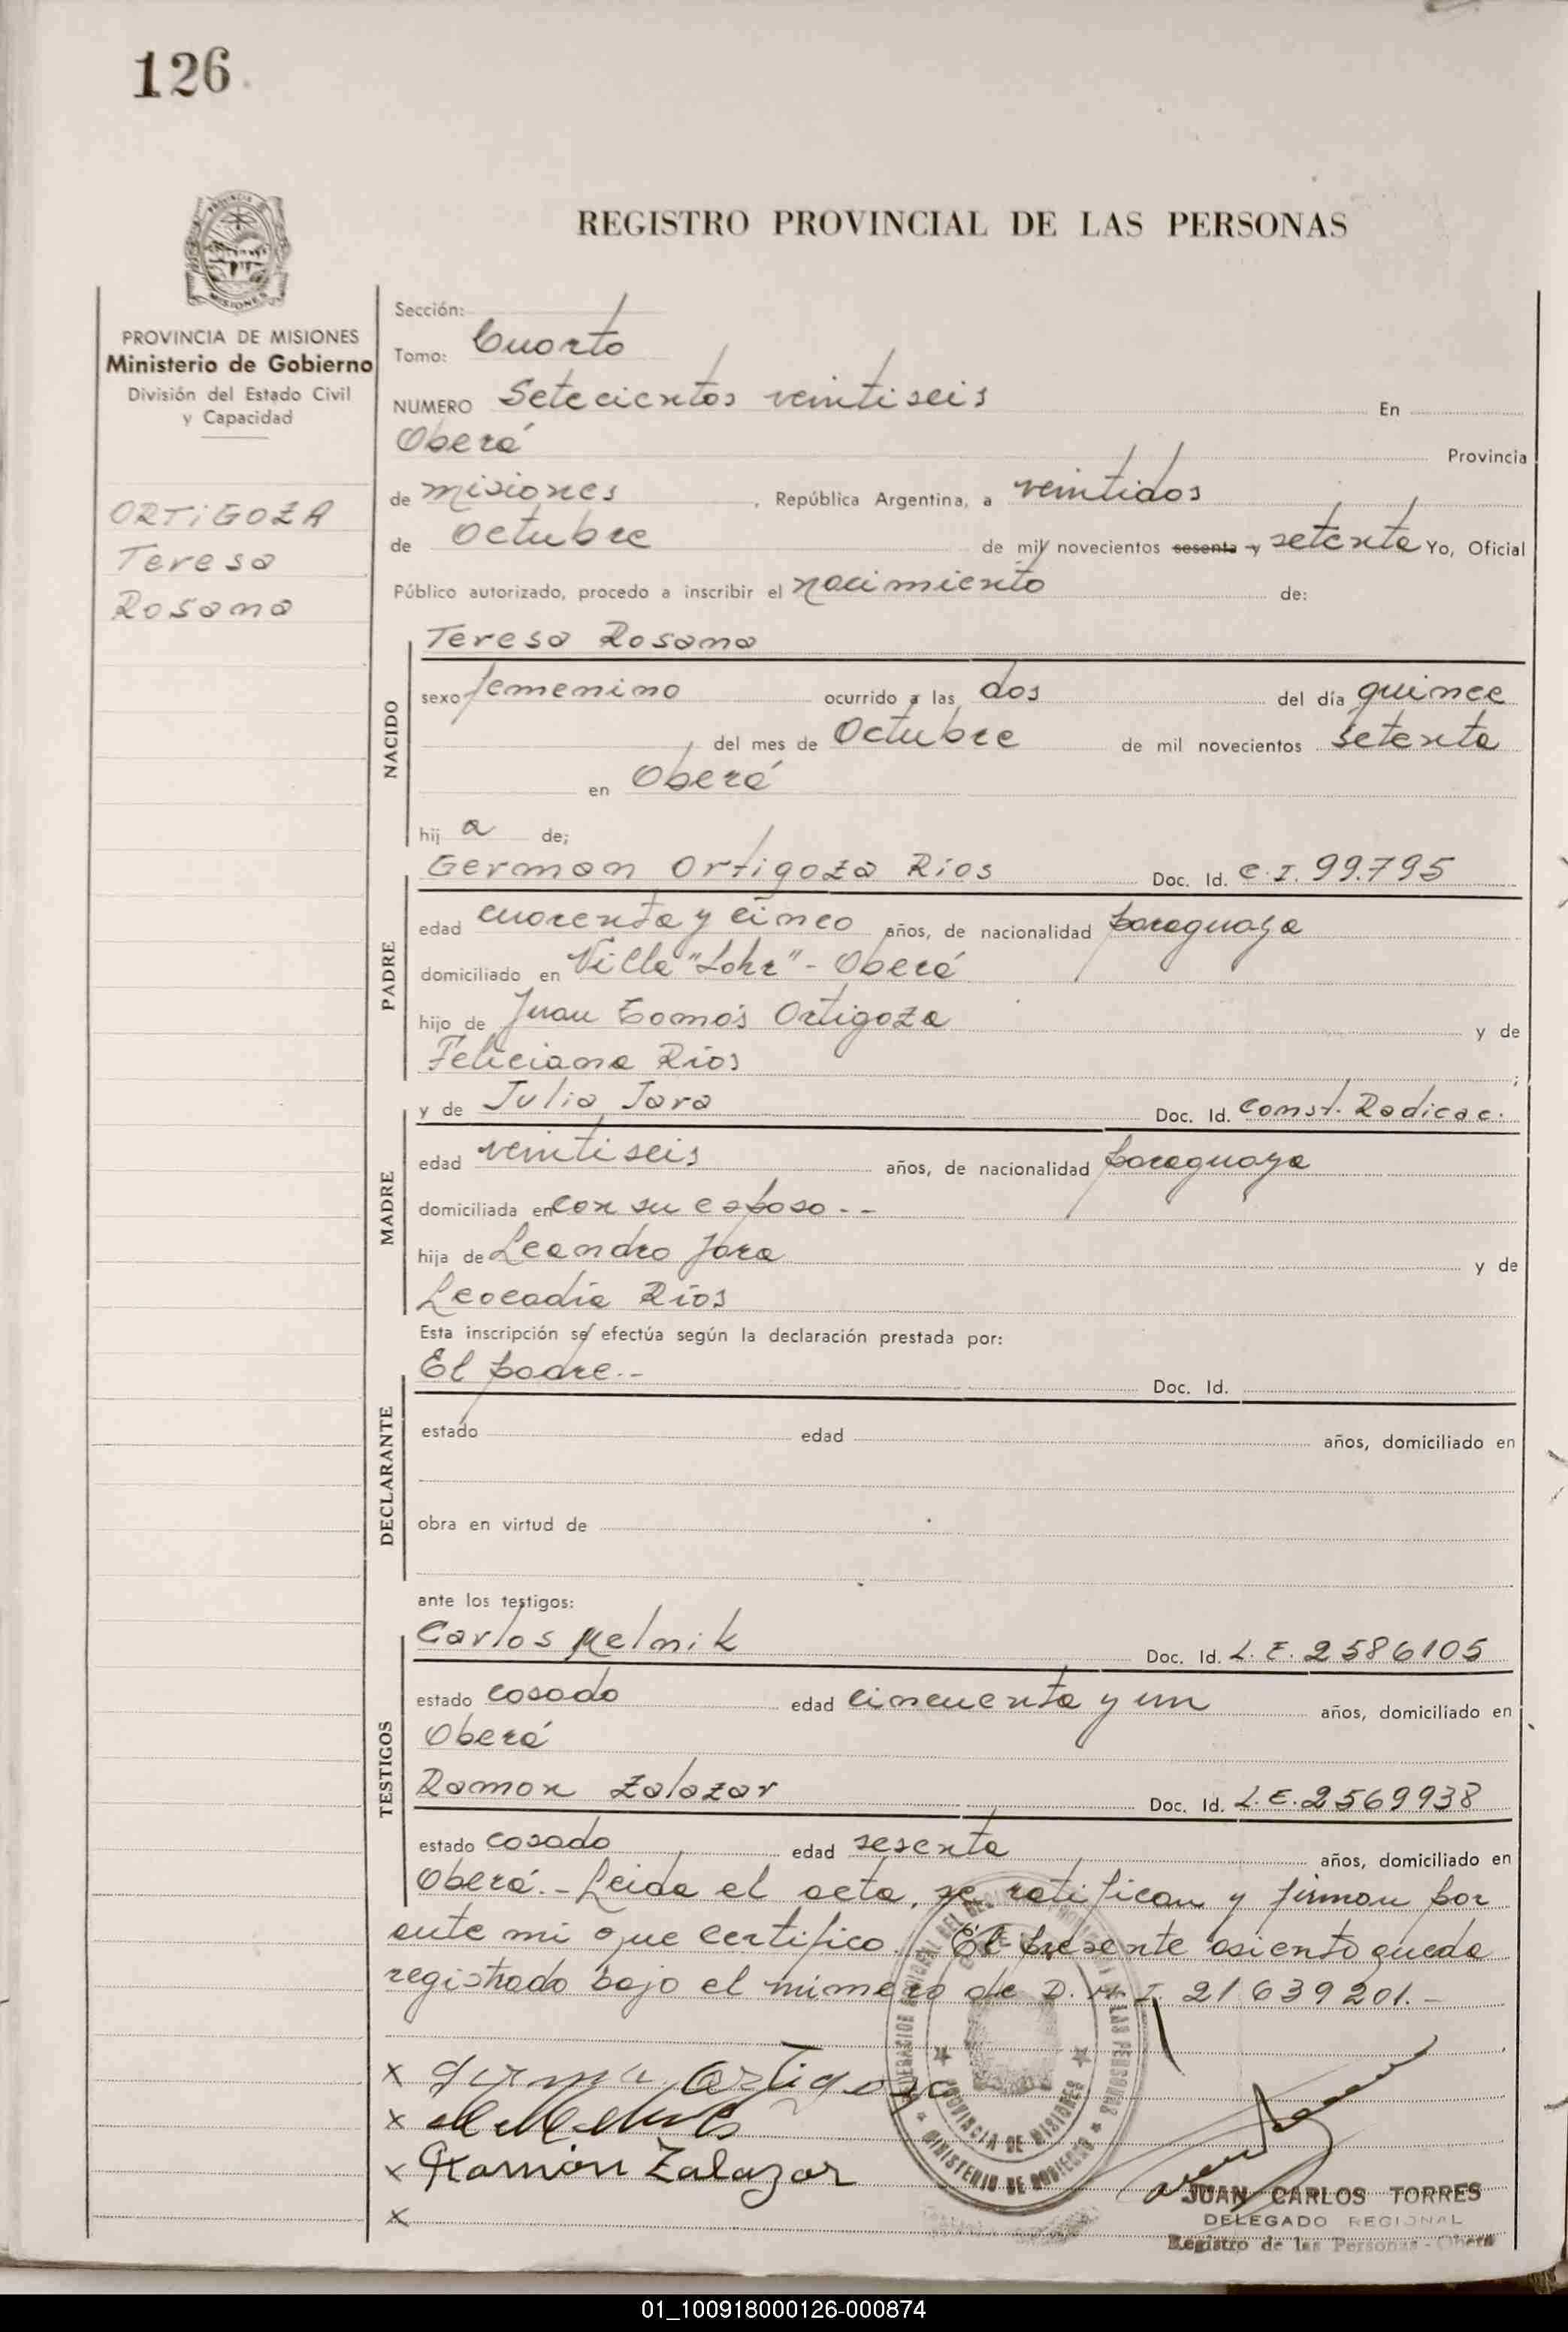 126
REGISTRO PROVINCIAL DE LAS PERSONAS
PROVINCIA DE MISIONES
Ministerio de Gobierno
División del Estado Civil
y Capacidad
ORTIGOZA
Teresa
Rosana
Sección:
Tomo: Cuarto
NUMERO Setecientos veintiseis En
Oberá Provincia
de misiones, República Argentina, a veintidos
de Octubre de mil novecientos sesenta y setenta Yo, Oficial
Público autorizado, procedo a inscribir el nacimiento de:
Teresa Rosana
NACIDO
sexo femenino ocurrido a las dos del día quince
del mes de Octubre de mil novecientos setenta
en Oberá
hij a de;
German Ortigoza Rios Doc. Id. C.I. 99.795
PADRE
edad cuarenta y cinco años, de nacionalidad paraguaya
domiciliado en Villa "Lohr" - Oberá
hijo de Juan Tomás Ortigoza y de
Feliciana Ríos ;
y de Julia Jara Doc. Id. Const. Radicac.
MADRE
edad veintiseis años, de nacionalidad paraguaya
domiciliada en con su esposo.--
hija de Leandro Jara y de
Leocadia Ríos
Esta inscripción se efectúa según la declaración prestada por:
El padre.- Doc. Id.
DECLARANTE
estado edad años, domiciliado en
obra en virtud de
ante los testigos:
Carlos Melnik Doc. Id. L.E. 2586105
TESTIGOS
estado casado edad cincuenta y un años, domiciliado en
Oberá
Ramon Zalazar Doc. Id. L.E. 2569938
estado casado edad sesenta años, domiciliado en
Oberá.- Leida el acta, se ratifican y firman por
ante mi que certifico. El presente asiento queda
registrado bajo el número de D.N.I. 21639201.-
x Ortigoza
x
x Ramón Zalazar
x
PROVINCIA DE MISIONES
MINISTERIO DE GOBIERNO
JUAN CARLOS TORRES
DELEGADO REGIONAL
Registro de las Personas - Oberá
01_100918000126-000874